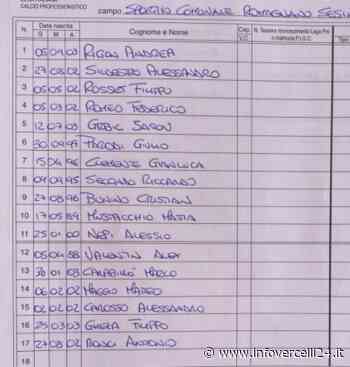 CALCIO PROFESSIONISTICO
campo SPORTIVO COMUNALE ROMAGNANO SESIA
N. Data nascita G M A Cognome e Nome Cap. V.C. N. Tessera riconoscimento Lega Pro o matricola F.I.G.C.
1 05 04 03 RIGON ANDREA
2 27 03 02 SILVESTRO ALESSANDRO
3 05 05 02 ROSSO FILIPPO
4 05 03 02 ROMEO FEDERICO
5 12 07 03 SARON
6 30 09 99 PARODI GIULIO
7 15 04 96 CLEMENTE GIANLUCA
8 04 09 95 SECCIANO RICCARDO
9 27 08 96 BUNINO CRISTIAN
10 17 05 89 MUSTACCHIO MATTIA
11 25 01 00 NEPI ALESSIO
12 05 04 88 VALENTINI ALEX
13 30 01 03 MARCO
14 06 02 02 MAGGIO MATTEO
15 02 02 02 CAROSSO ALESSANDRO
16 25 03 03 GHIERA FILIPPO
17 27 08 02 ANTONIO
18
© www.infovercelli24.it